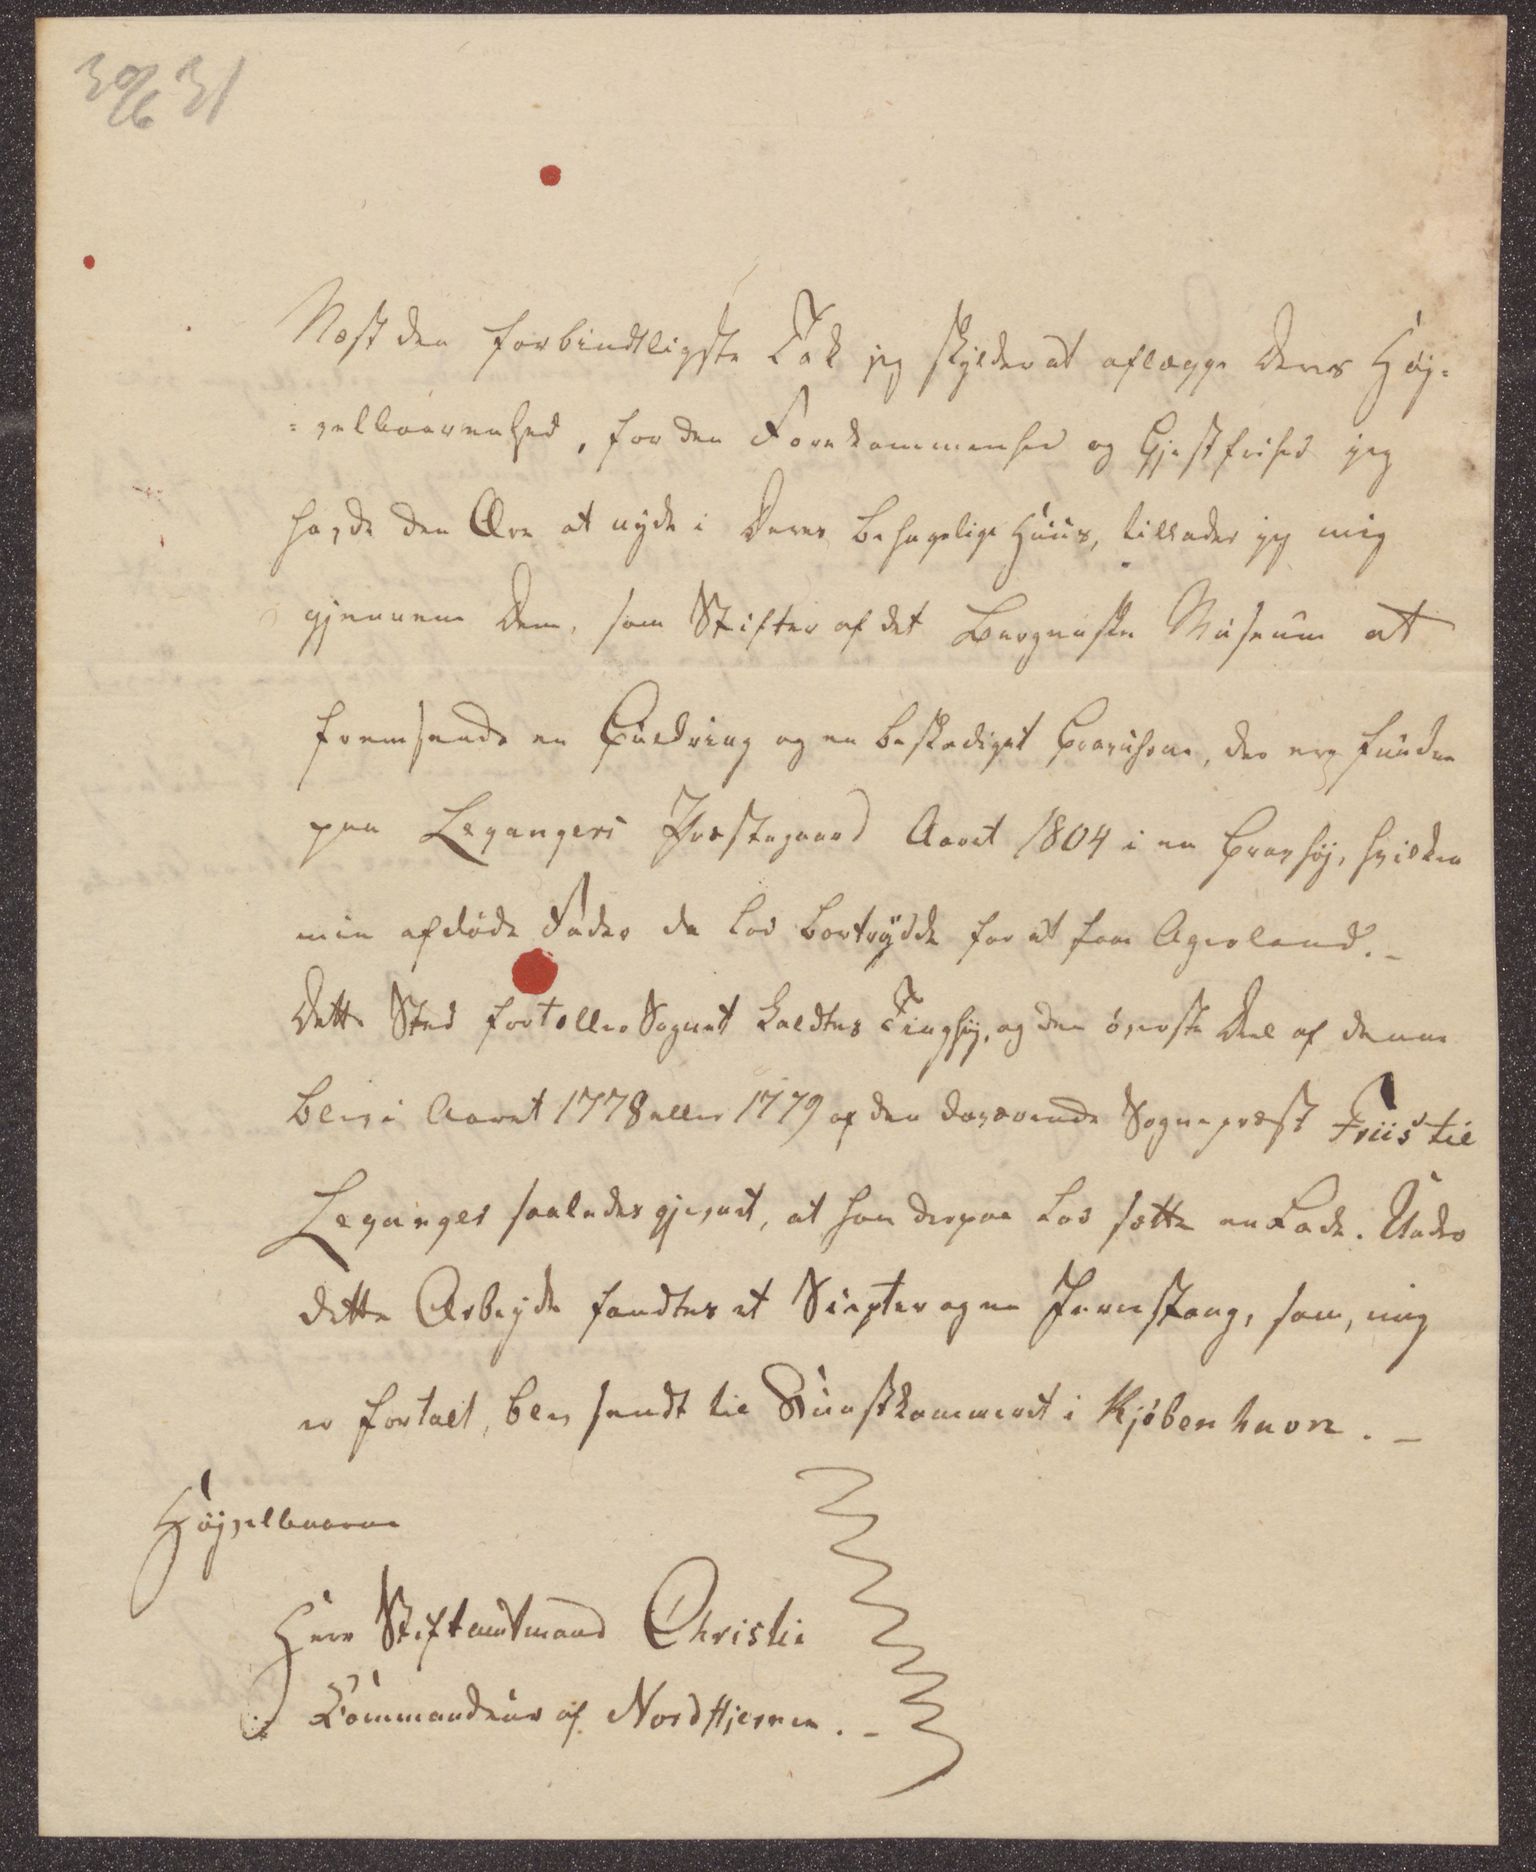 30/6 31
Næst den forbindtligste Tak jeg skylder at aflægge Deres Høj-
=velbaarenhed, for den Forekommenhed og Gjestfrihed jeg
havde den Ære at nyde i Deres behagelige Huus, tillader jeg mig
gjennem Dem, som Stifter af det Bergenske Museum at
fremsende en Guldring og en beskadiget Gravurne, der ere fundne
paa Leganger Præstegaard Aaret 1804 i en Gravhøj, hvilken
min afdøde Fader da lod bortrydde for at faae Agerland.-
Dette Sted fortæller Sagnet kaldtes Tinghøj, og den øverste Deel af denne
blev i Aaret 1778 eller 1779 af den daværende Sognepræst Friis til
Leganger saaledes gjevnet, at han derpaa lod sætte en Lade. Under
dette Arbejde fandtes et Scepter og en Jernstang, som, mig
er fortalt, blev sendt til Kunstkammeret i Kjöbenhavn.-
Højvelbaarne
Herr Stiftamtmand Christie
Kommandeur af Nordstjernen.-